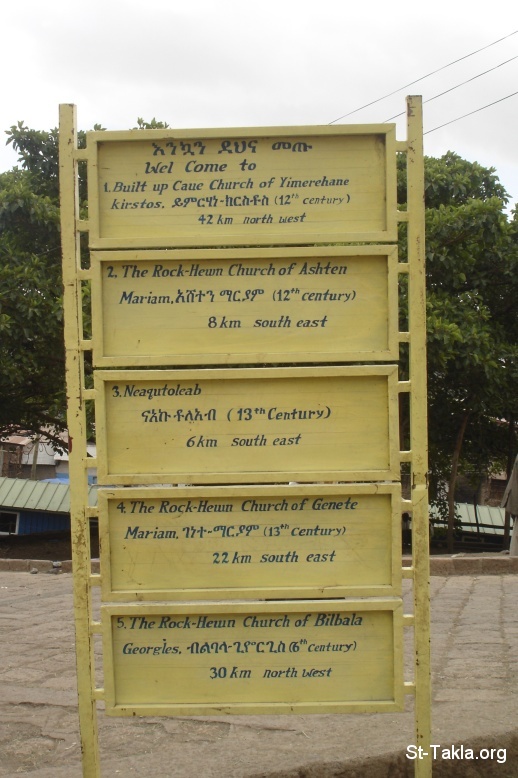 እንኳን ደህና መጡ
Wel Come to
1. Built up Caue Church of Yimerehane
kirstos, ይምርሃነ-ክርስቶስ (12th century)
42 km north west
2. The Rock-Hewn Church of Ashten
Mariam, አሸተን ማርያም (12th century)
8 km south east
3. Neaqutoleab
ናአኩ-ቶለአብ (13th Century)
6 km south east
4. The Rock-Hewn Church of Genete
Mariam, ገነተ-ማርያም (13th century)
22 km south east
5. The Rock-Hewn Church of Bilbala
Georgies, ብልባላ-ጊዮርጊስ (6th century)
30 km north west
St-Takla.org